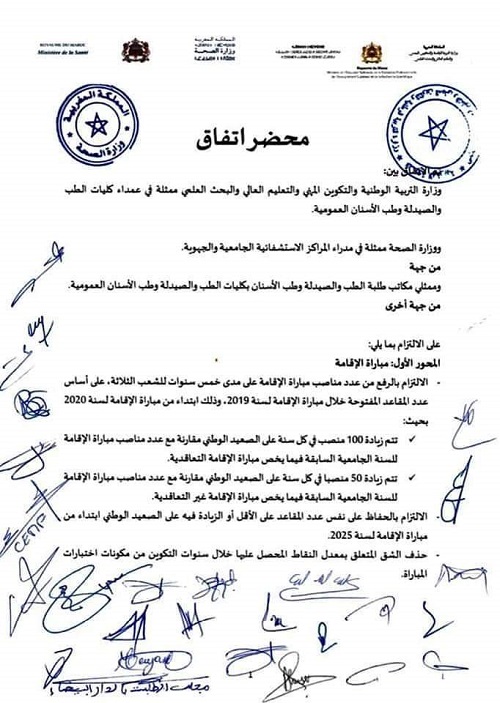 ROYAUME DU MAROC
Ministère de la Santé
المملكة المغربية
وزارة الصحة
Royaume du Maroc
المملكة المغربية
وزارة الصحة
محضر اتفاق
بين:
وزارة التربية الوطنية والتكوين المهني والتعليم العالي والبحث العلمي ممثلة في عمداء كليات الطب
والصيدلة وطب الأسنان العمومية.
ووزارة الصحة ممثلة في مدراء المراكز الاستشفائية الجامعية والجهوية.
من جهة
وممثلي مكاتب طلبة الطب والصيدلة وطب الأسنان بكليات الطب والصيدلة وطب الأسنان العمومية.
من جهة أخرى
على الالتزام بما يلي:
المحور الأول: مباراة الإقامة
- الالتزام بالرفع من عدد مناصب مباراة الإقامة على مدى خمس سنوات للشعب الثلاثة، على أساس
عدد المقاعد المفتوحة خلال مباراة الإقامة لسنة 2019، وذلك ابتداء من مباراة الإقامة لسنة 2020
بحيث:
✓ تتم زيادة 100 منصب في كل سنة على الصعيد الوطني مقارنة مع عدد مناصب مباراة الإقامة
للسنة الجامعية السابقة فيما يخص مباراة الإقامة التعاقدية.
✓ تتم زيادة 50 منصبا في كل سنة على الصعيد الوطني مقارنة مع عدد مناصب مباراة الإقامة
للسنة الجامعية السابقة فيما يخص مباراة الإقامة غير التعاقدية.
- الالتزام بالحفاظ على نفس عدد المقاعد على الأقل أو الزيادة فيه على الصعيد الوطني ابتداء من
مباراة الإقامة لسنة 2025.
- حذف الشق المتعلق بمعدل النقاط المحصل عليها خلال سنوات التكوين من مكونات اختبارات
المباراة.
مجلس الطلبة بالدار البيضاء